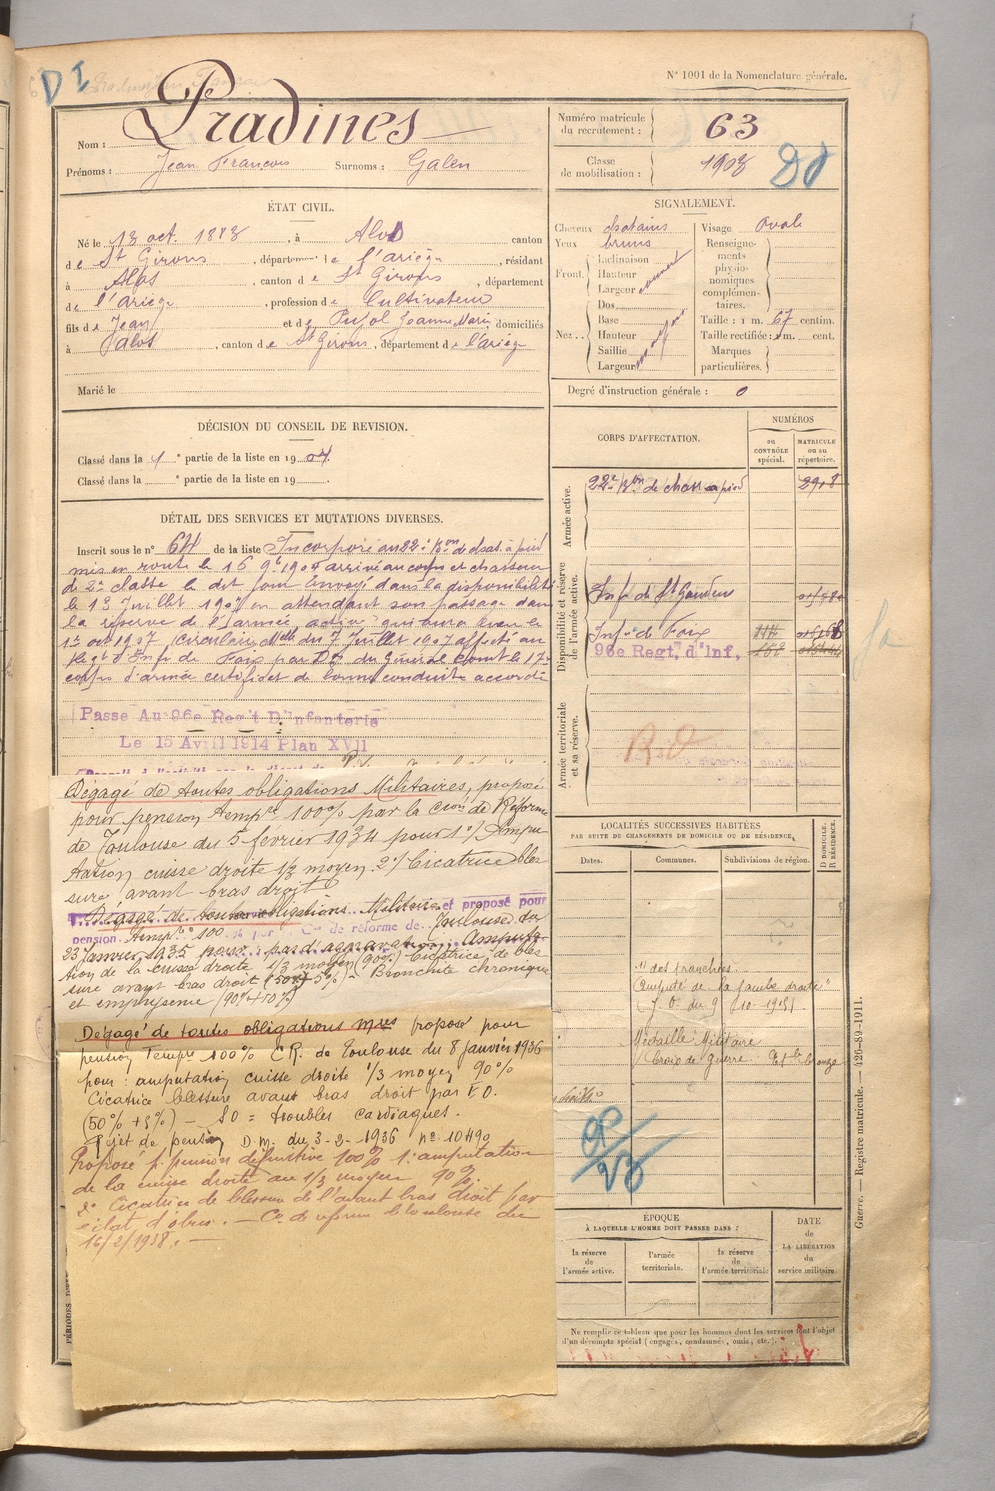 DI
N° 1001 de la Nomenclature générale.
Nom : Pradines
Prénoms : Jean François Surnoms : Galen
Numéro matricule du recrutement : 63
Classe de mobilisation : 1903
ÉTAT CIVIL.
Né le 13 oct. 1883, à Alos canton
de St Girons, département de l'ariège, résidant
à Alos, canton de St Girons, département
de l'ariège, profession de Cultivateur
fils de Jean et de Pujol Jeanne Marie domiciliés
à alos, canton de St Girons, département de l'ariège
Marié le
SIGNALEMENT.
Cheveux chatains
Yeux bruns
Front. Inclinaison
Hauteur
Largeur couvert
Nez. Dos
Base
Hauteur
Saillie
Largeur
Visage Ovale
Renseignements physionomiques complémentaires.
Taille : 1 m. 67 centim.
Taille rectifiée : 1 m. cent.
Marques particulières.
Degré d'instruction générale : 0
DÉCISION DU CONSEIL DE REVISION.
Classé dans la 1e partie de la liste en 1904.
Classé dans la e partie de la liste en 19 .
DÉTAIL DES SERVICES ET MUTATIONS DIVERSES.
Inscrit sous le n° 64 de la liste Incorporé au 22e Bon de chas. à pied
mis en route le 16 9bre 1904 arrivé au corps et chasseur
de 2e classe le dit jour Envoyé dans la disponibilité
le 13 Juillet 1907 en attendant son passage dans
la réserve de l'armée active qui aura lieu le
1er oct 1907 (circulaire Mlle du 7 Juillet 1907 affecté au
Regt d'Inf de Foix par Don du Général Comt le 17e
corps d'armée certificat de bonne conduite accordé
Passé Au 96e Reg't D'Infanterie
Le 15 Avril 1914 Plan XVII
Dégagé de toutes obligations Militaires, proposé
pour pension Tempre 100% par la Cion de Réforme
de Toulouse du 5 février 1934 pour 1°/ Ampu
tation cuisse droite 1/3 moyen 2°/ Cicatrice bles
sure avant bras droit
Dégagé de toutes obligations Militaires et proposé pour
pension Tempre 100 % par Con de réforme de Toulouse du
23 Janvier 1935 pour : pas d'aggravation, Amputa
tion de la cuisse droite 1/3 moyen (90%) Cicatrice de bles
sure avant bras droit 5%) - Bronchite chronique
et emphysème (90%+10%)
Dégagé de toutes obligations Mres proposé pour
pension Tempre 100% CR. de Toulouse du 8 janvier 1936
pour : amputation cuisse droite 1/3 moyen 90%
Cicatrice blessure avant bras droit par E O.
(50% +5%) - SO = troubles cardiaques.
Rejet de pension D.M. du 3-2-1936 n° 10490
Proposé p. pension définitive 100% 1° amputation
de la cuisse droite au 1/3 moyen 90%
2° Cicatrice de blessure de l'avant bras droit par
éclat d'obus. - Con de réforme de Toulouse du
16/2/1938. -
CORPS D'AFFECTATION.
NUMÉROS
OU CONTRÔLE spécial.
MATRICULE ou au répertoire.
Armée active.
22e Bon de chass à pied 2908
Disponibilité et réserve de l'armée active.
Inf de St Gaudens
Inf de Foix
96e Regt, d'Inf,
Armée territoriale et sa réserve.
LOCALITÉS SUCCESSIVES HABITÉES
PAR SUITE DE CHANGEMENTS DE DOMICILE OU DE RÉSIDENCE.
Dates.
Communes.
Subdivisions de région.
D DOMICILE. R RÉSIDENCE.
des tranchées.
Amputé de la jambe droite"
(J. O. du 9 10-1915)
Médaille Militaire
Croix de Guerre
ÉPOQUE
À LAQUELLE L'HOMME DOIT PASSER DANS :
la réserve de l'armée active.
l'armée territoriale.
la réserve de l'armée territoriale
DATE de LA LIBÉRATION du service militaire
Ne remplir ce tableau que pour les hommes dont les services font l'objet
d'un décompte spécial (engagés, condamnés, omis, etc.).
Guerre. — Registre matricule. — 426-89-1911.